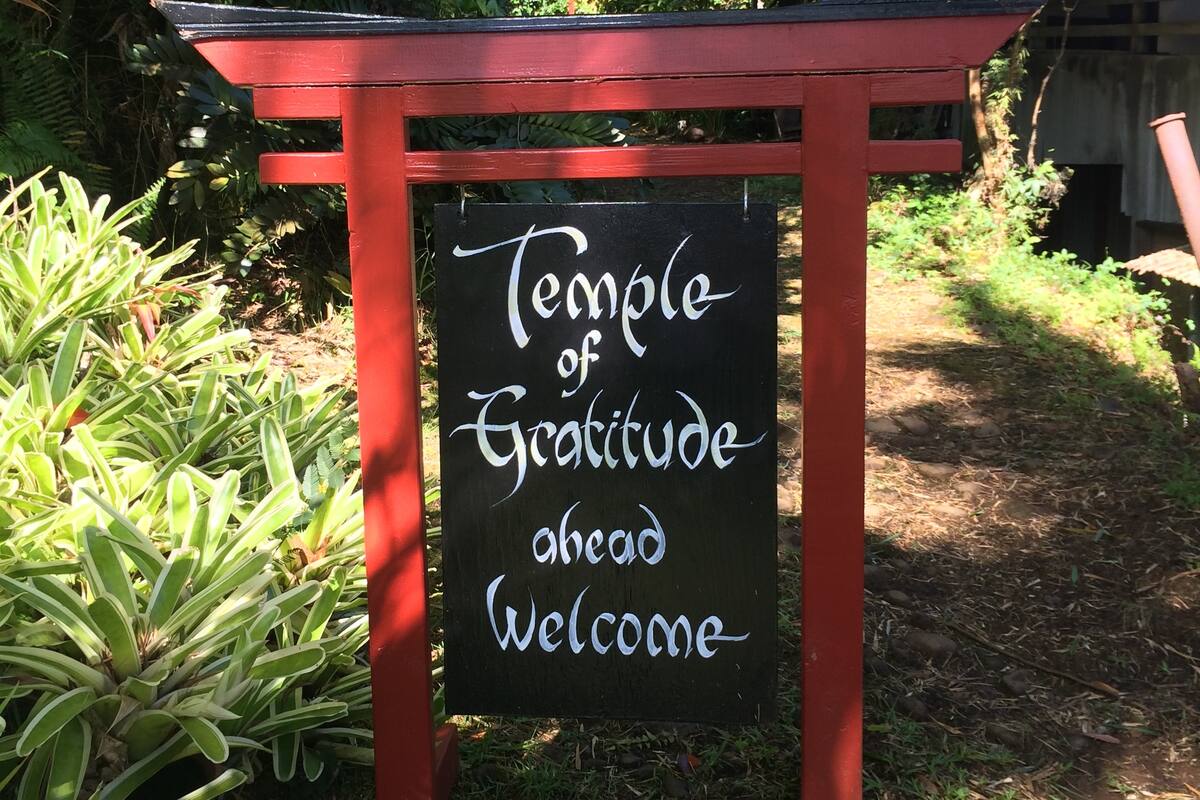 Temple
of
Gratitude
ahead
Welcome